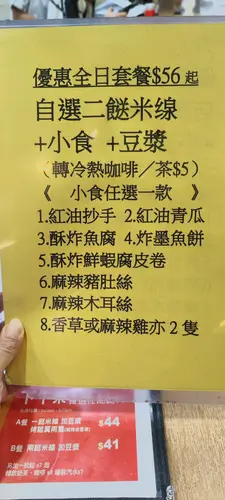 優惠全日套餐$56起
自選二餸米缐
+小食 +豆漿
（轉冷熱咖啡／茶$5）
《 小食任選一款 》
1.紅油抄手 2.紅油青瓜
3.酥炸魚腐 4.炸墨魚餅
5.酥炸鮮蝦腐皮卷
6.麻辣豬肚絲
7.麻辣木耳絲
8.香草或麻辣雞亦2隻
A餐 一餸米線 加豆漿
$44
B餐 兩餸米線 加豆漿
$41